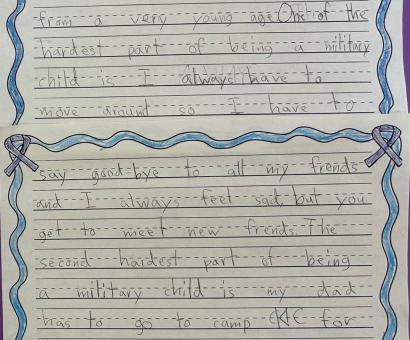 from a very young age. One of the
hardest part of being a military
child is I always have to
move around so I have to
say good-bye to all my frends
and I always feel sad, but you
get to meet new frends. The
second hardest part of being
a military child is my dad
has to go to camp for